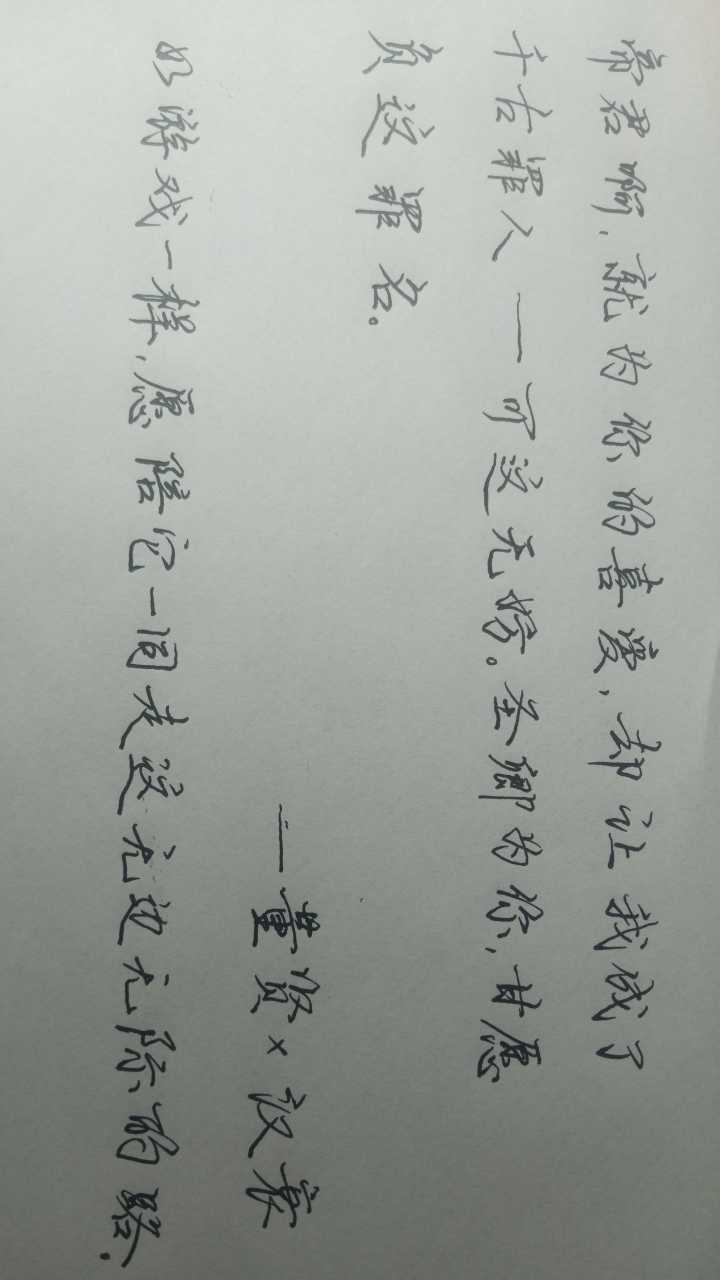 帝君啊,就为你的喜爱,却让我成了
千古罪人一可这无妨。圣卿为你,甘愿
负这罪名。
一董贤×汉哀
如游戏一样,愿陪它一同走这无边无际的路.